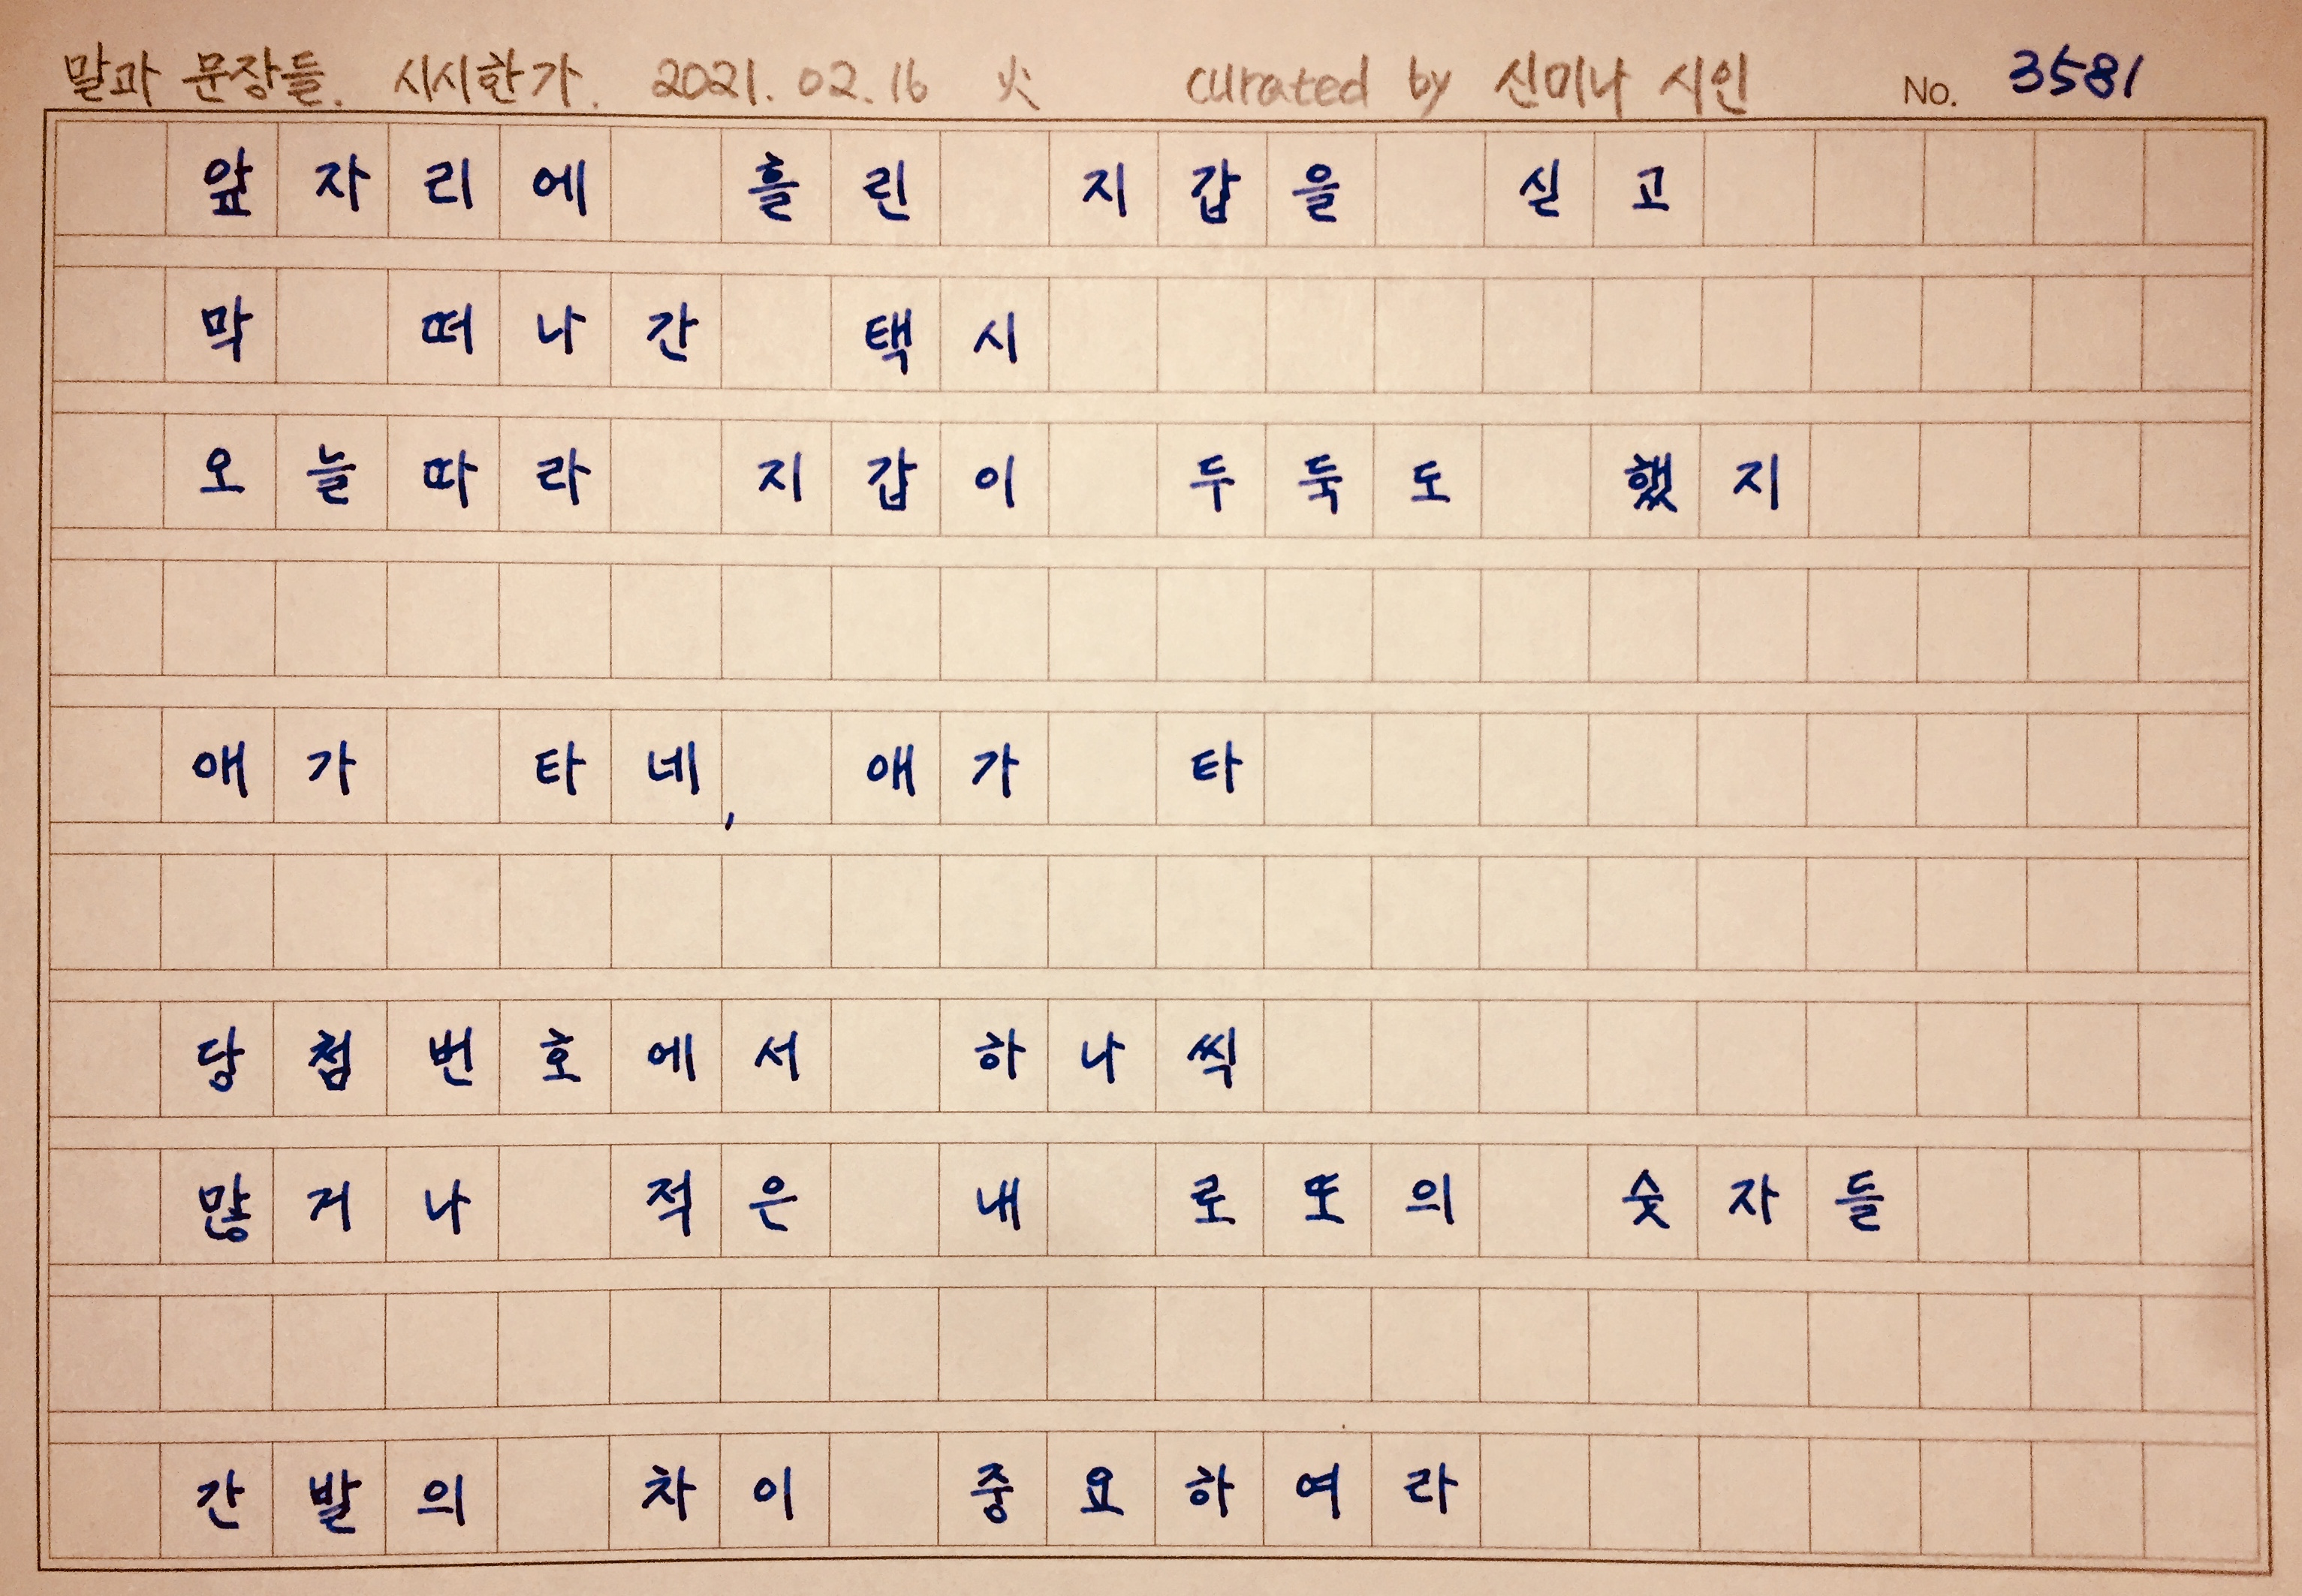 말과 문장들. 시시한가. 2021. 02. 16 火 curated by 신미나 시인 No. 3581
앞자리에 흘린 지갑을 싣고
막 떠나간 택시
오늘따라 지갑이 두둑도 했지
애가 타네, 애가 타
당첨번호에서 하나씩
많거나 적은 내 로또의 숫자들
간발의 차이 중요하여라